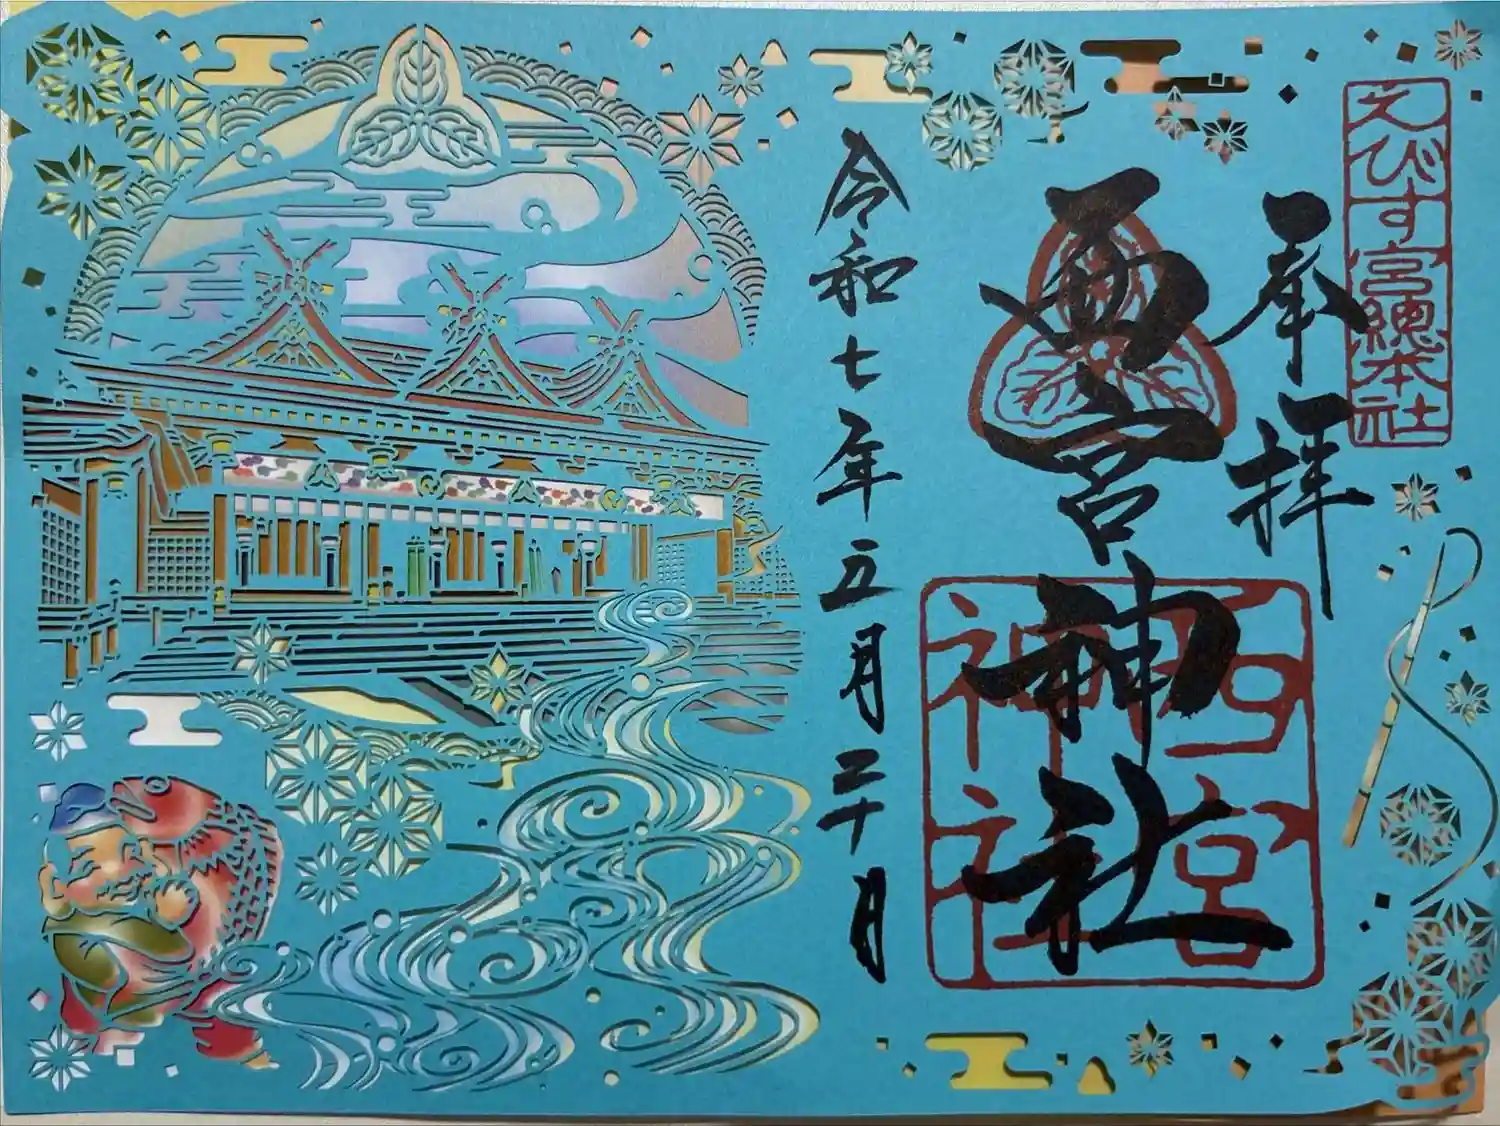 えびす宮總本社
奉拝
西宮神社
西宮神社
令和七年五月二十日